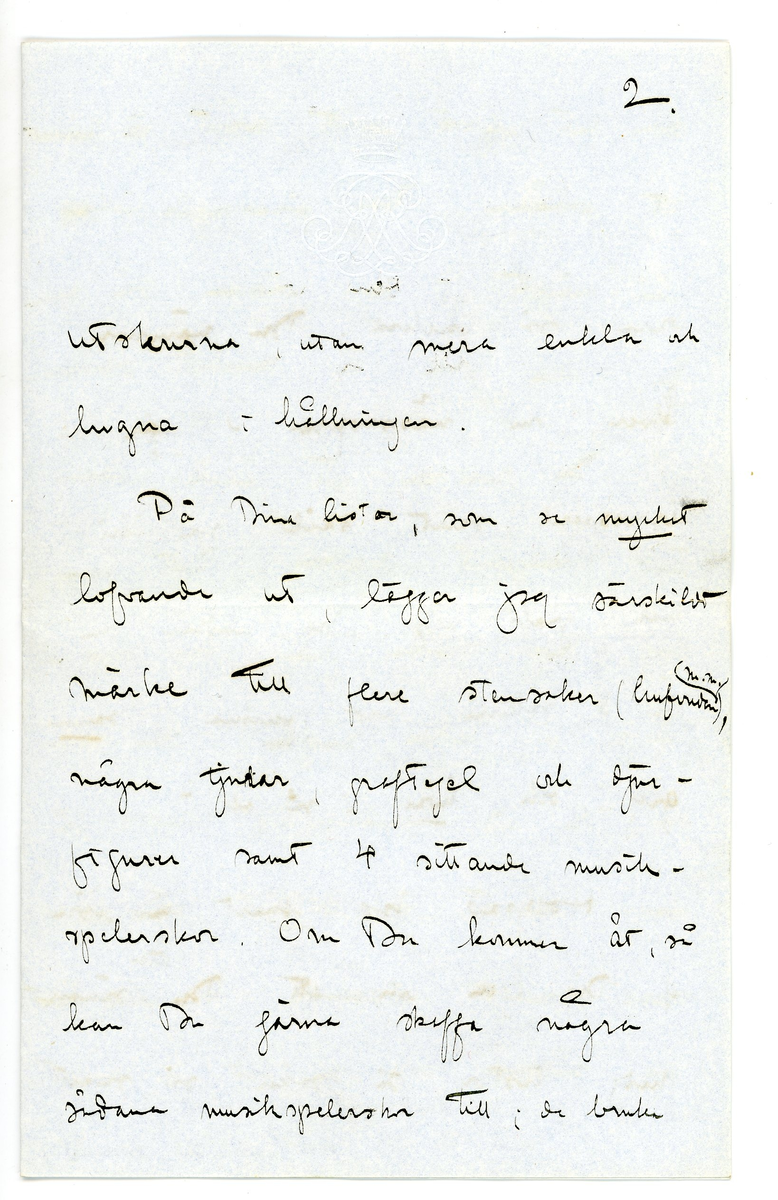 2.
utskurna, utan mera enkla och
lugna i hållningen.
På Dina listor, som se mycket
lofvande ut, lägger jag särskildt
märke till flere stensaker (hufvuden m.m.),
några tjurar, graftegel och djur-
figurer samt 4 sittande musik-
spelerskor. Om Du kommer åt, så
kan Du gärna skaffa några
sådana musikspelerskor till; de bruka